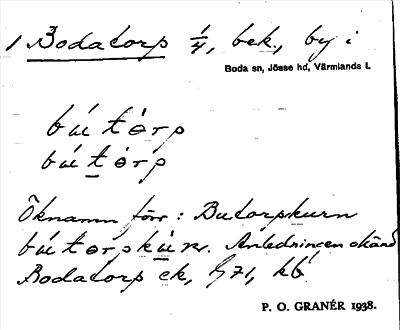 1 Bodatorp 1/4, bek., by i
Boda sn, Jösse hd, Värmlands l.
bútòrp
bútòrp
Öknamn för: Butorpskurn
Anledningen okänd
Bodatorp ek,
P. O. GRANÉR 1938.